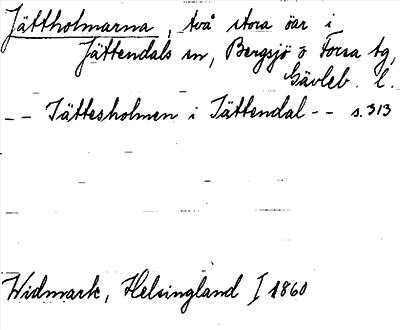 Jättholmarna, två stora öar i
Jättendals sn, Bergsjö o Forsa tg,
Gävleb. l.
-- Jättesholmen i Jättendal -- s. 313
Widmark, Helsingland I 1860